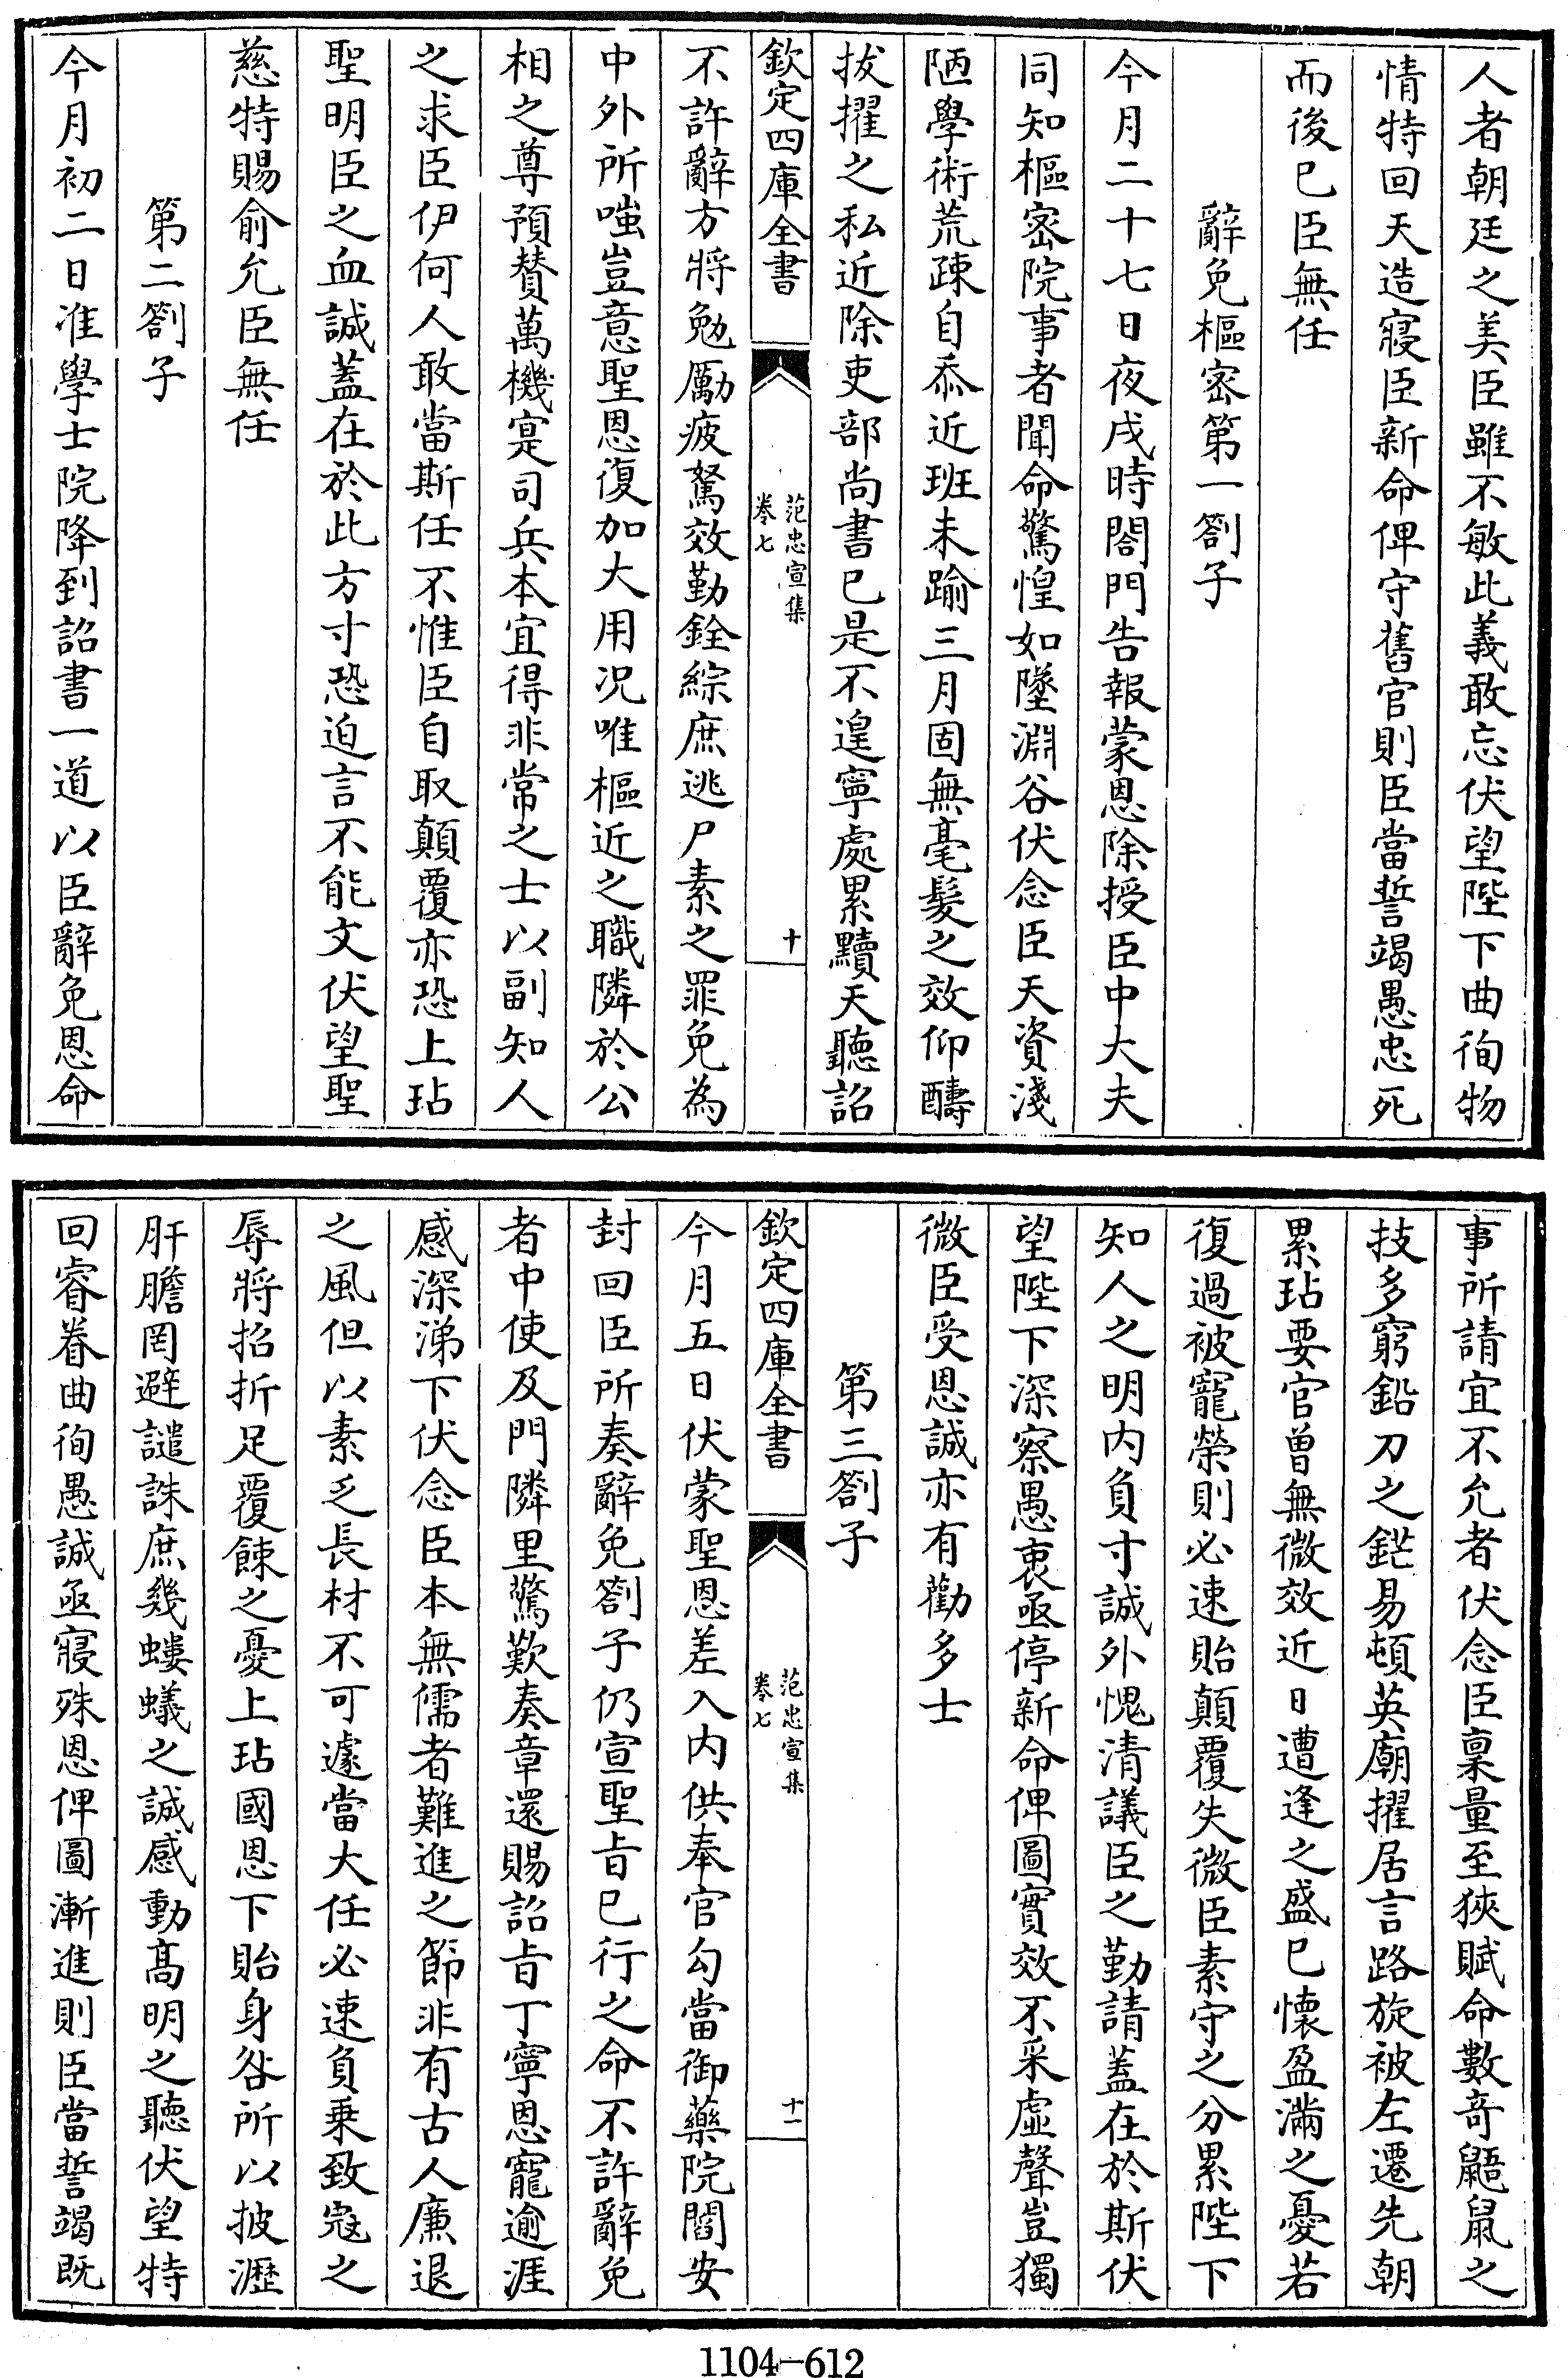 人者朝廷之美臣雖不敏此義敢忘伏望陛下曲徇物
情特回天造寢臣新命俾守舊官則臣當誓竭愚忠死
而後已臣無任
辭免樞密第一劄子
今月二十七日夜戌時閤門告報蒙恩除授臣中大夫
同知樞密院事者聞命驚惶如墜淵谷伏念臣天資淺
陋學術荒疎自忝近班未踰三月固無毫髮之效仰醻
拔擢之私近除吏部尚書已是不遑寧處累黷天聽詔
欽定四庫全書
范忠宣集
卷七
十
不許辭方將勉厲疲駑效勤銓綜庶逃尸素之罪免為
中外所嗤豈意聖恩復加大用况唯樞近之職隣於公
相之尊預贊萬機寔司兵本宜得非常之士以副知人
之求臣伊何人敢當斯任不惟臣自取顛覆亦恐上玷
聖明臣之血誠蓋在於此方寸恐迫言不能文伏望聖
慈特賜俞允臣無任
第二劄子
今月初二日准學士院降到詔書一道以臣辭免恩命
事所請宜不允者伏念臣稟量至狹賦命數竒鼯鼠之
技多窮鉛刀之鋩易頓英廟擢居言路旋被左遷先朝
累玷要官曾無微效近日遭逢之盛已懷盈滿之憂若
復過被寵榮則必速貽顛覆失微臣素守之分累陛下
知人之明内負寸誠外愧清議臣之勤請蓋在於斯伏
望陛下深察愚衷亟停新命俾圖實效不采虛聲豈獨
微臣受恩誠亦有勸多士
第三劄子
欽定四庫全書
范忠宣集
卷七
十一
今月五日伏蒙聖恩差入内供奉官勾當御藥院閻安
封回臣所奏辭免劄子仍宣聖㫖已行之命不許辭免
者中使及門隣里驚歎奏章還賜詔㫖丁寧恩寵逾涯
感深涕下伏念臣本無儒者難進之節非有古人廉退
之風但以素乏長材不可遽當大任必速負乗致寇之
辱將招折足覆餗之憂上玷國恩下貽身咎所以披瀝
肝膽罔避譴誅庶幾螻蟻之誠感動髙明之聽伏望特
回睿眷曲徇愚誠亟寢殊恩俾圖漸進則臣當誓竭既
1104-612